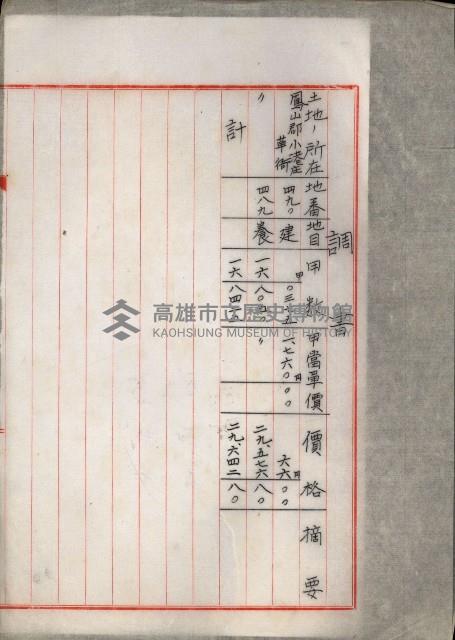 調書
土地ノ所在 地番 地目 甲數 甲當單價 價格 摘要
鳳山郡小港庄
草衙 四九〇 建 甲〇三七五 一七六〇円〇〇 六六円〇〇
〃 四八九 養 一六八〇四五 〃 二九、五七六八〇
計 一六八四二〇 二九、六四二八〇
高雄市立歷史博物館
KAOHSIUNG MUSEUM OF HISTORY